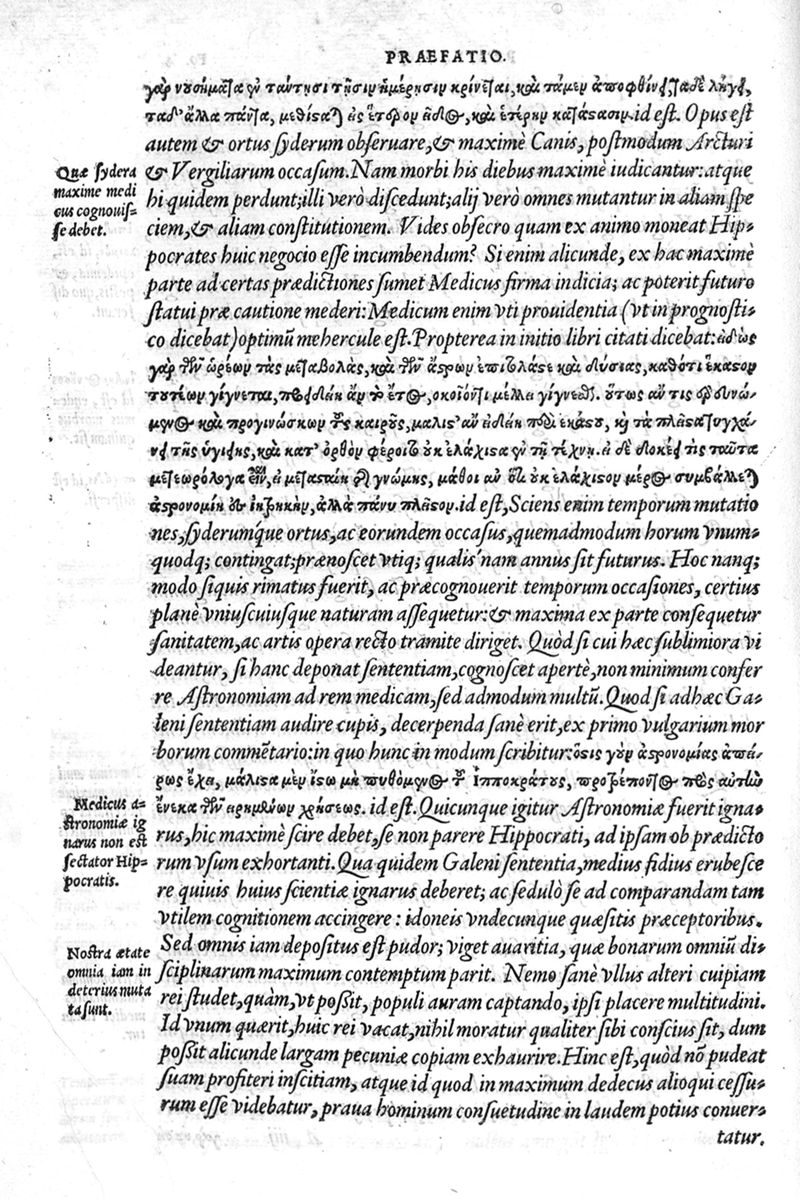 PRAEFATIO.
γὰρ νουσήματα ἐν ταύτῃσι τῇσιν ἡμέρῃσιν κρίνεται, καὶ τὰ μὲν ἀποφθίνει, τὰ δὲ λήγει,
τὰ δ' ἄλλα πάντα, μεθίσταται ἐς ἕτερον εἶδος, καὶ ἑτέρην κατάστασιν. id eſt. Opus eſt
autem & ortus ſyderum obſeruare, & maximè Canis, poſtmodum Arcturi
& Vergiliarum occaſum. Nam morbi his diebus maximè iudicantur: atque
hi quidem perdunt; illi verò diſcedunt; alij verò omnes mutantur in aliam ſpe
ciem, & aliam conſtitutionem. Vides obſecro quam ex animo moneat Hip-
pocrates huic negocio eſſe incumbendum? Si enim alicunde, ex hac maximè
parte ad certas prædictiones ſumet Medicus firma indicia; ac poterit futuro
ſtatui præ cautione mederi: Medicum enim vti prouidentia (vt in prognoſti-
co dicebat) optimū mehercule eſt. Propterea in initio libri citati dicebat: εἰδὼς
γὰρ τῶν ὡρέων τὰς μεταβολὰς, καὶ τῶν ἄστρων ἐπιτολάς τε καὶ δύσιας, καθότι ἕκαστον
τουτέων γίγνεται, προειδείη ἂν τὸ ἔτος, ὁκοῖόν τι μέλλει γίγνεσθαι. οὕτως ἄν τις
καὶ προγινώσκων τοὺς καιροὺς, μάλιστ' ἂν εἰδείη περὶ ἑκάστου, καὶ τὰ πλεῖστα τυγχά-
νει τῆς ὑγιείης, καὶ κατ' ὀρθὸν φέροιτο οὐκ ἐλάχιστα ἐν τῇ τέχνῃ. εἰ δὲ δοκέει τις ταῦτα
μετεωρόλογα εἶναι, εἰ μετασταίη τῆς γνώμης, μάθοι ἂν ὅτι οὐκ ἐλάχιστον μέρος συμβάλλεται
ἀστρονομίη ἐς ἰητρικὴν, ἀλλὰ πάνυ πλεῖστον. id eſt, Sciens enim temporum mutatio
nes, ſyderumq́ue ortus, ac eorundem occaſus, quemadmodum horum vnum-
quodq; contingat; prænoſcet vtiq; qualis nam annus ſit futurus. Hoc nanq;
modo ſiquis rimatus fuerit, ac præcognouerit temporum occaſiones, certius
planè vniuſcuiuſque naturam aſſequetur: & maxima ex parte conſequetur
ſanitatem, ac artis opera recto tramite diriget. Quòd ſi cui hæc ſublimiora vi
deantur, ſi hanc deponat ſententiam, cognoſcet apertè, non minimum confer
re Aſtronomiam ad rem medicam, ſed admodum multū. Quod ſi adhæc Ga-
leni ſententiam audire cupis, decerpenda ſanè erit, ex primo vulgarium mor
borum commētario: in quo hunc in modum ſcribitur: ὅστις γὰρ ἀστρονομίας ἀπεί-
ρως ἔχει, μάλιστα μὲν ἴστω μὴ πυθόμενος τοῦ Ἱπποκράτους, προτρέποντος πρὸς αὐτὴν
ἕνεκα τῶν χρήσεως. id eſt. Quicunque igitur Aſtronomiæ fuerit igna-
rus, hic maximè ſcire debet, ſe non parere Hippocrati, ad ipſam ob prædicto
rum vſum exhortanti. Qua quidem Galeni ſententia, medius fidius erubeſce
re quiuis huius ſcientiæ ignarus deberet; ac ſedulò ſe ad comparandam tam
vtilem cognitionem accingere : idoneis vndecunque quæſitis præceptoribus.
Sed omnis iam depoſitus eſt pudor; viget auaritia, quæ bonarum omniū di-
ſciplinarum maximum contemptum parit. Nemo ſanè vllus alteri cuipiam
rei ſtudet, quàm, vt poſſit, populi auram captando, ipſi placere multitudini.
Id vnum quærit, huic rei vacat, nihil moratur qualiter ſibi conſcius ſit, dum
poſſit alicunde largam pecuniæ copiam exhaurire. Hinc eſt, quòd nō pudeat
ſuam profiteri inſcitiam, atque id quod in maximum dedecus alioqui ceſſu-
rum eſſe videbatur, praua hominum conſuetudine in laudem potius conuer-
tatur.
Quæ ſydera
maxime medi
cus cognouiſ-
ſe debet.
Medicus a-
ſtronomiæ ig
narus non eſt
ſectator Hip-
pocratis.
Noſtra ætate
omnia iam in
deterius muta
ta ſunt.